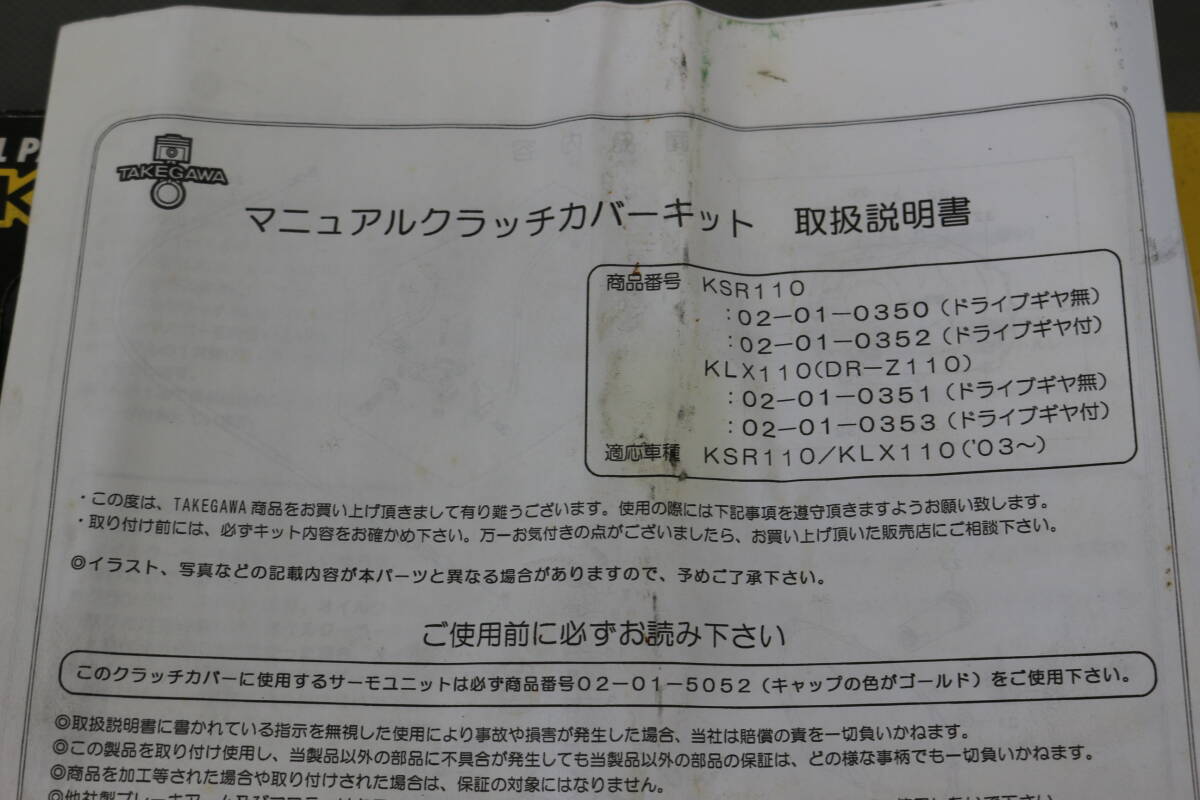 TAKEGAWA
マニュアルクラッチカバーキット 取扱説明書
商品番号 KSR110
:02-01-0350(ドライブギヤ無)
:02-01-0352(ドライブギヤ付)
KLX110(DR-Z110)
:02-01-0351(ドライブギヤ無)
:02-01-0353(ドライブギヤ付)
適応車種 KSR110/KLX110('03〜)
・この度は、TAKEGAWA商品をお買い上げ頂きまして有り難うございます。使用の際には下記事項を遵守頂きますようお願い致します。
・取り付け前には、必ずキット内容をお確かめ下さい。万一お気付きの点がございましたら、お買い上げ頂いた販売店にご相談下さい。
◎イラスト、写真などの記載内容が本パーツと異なる場合がありますので、予めご了承下さい。
ご使用前に必ずお読み下さい
このクラッチカバーに使用するサーモユニットは必ず商品番号02-01-5052(キャップの色がゴールド)をご使用下さい。
◎取扱説明書に書かれている指示を無視した使用により事故や損害が発生した場合、当社は賠償の責を一切負いかねます。
◎この製品を取り付け使用し、当製品以外の部品に不具合が発生しても当製品以外の部品の保証は、どの様な事柄でも一切負いかねます。
◎商品を加工等された場合や取り付けされた場合は、保証の対象にはなりません。